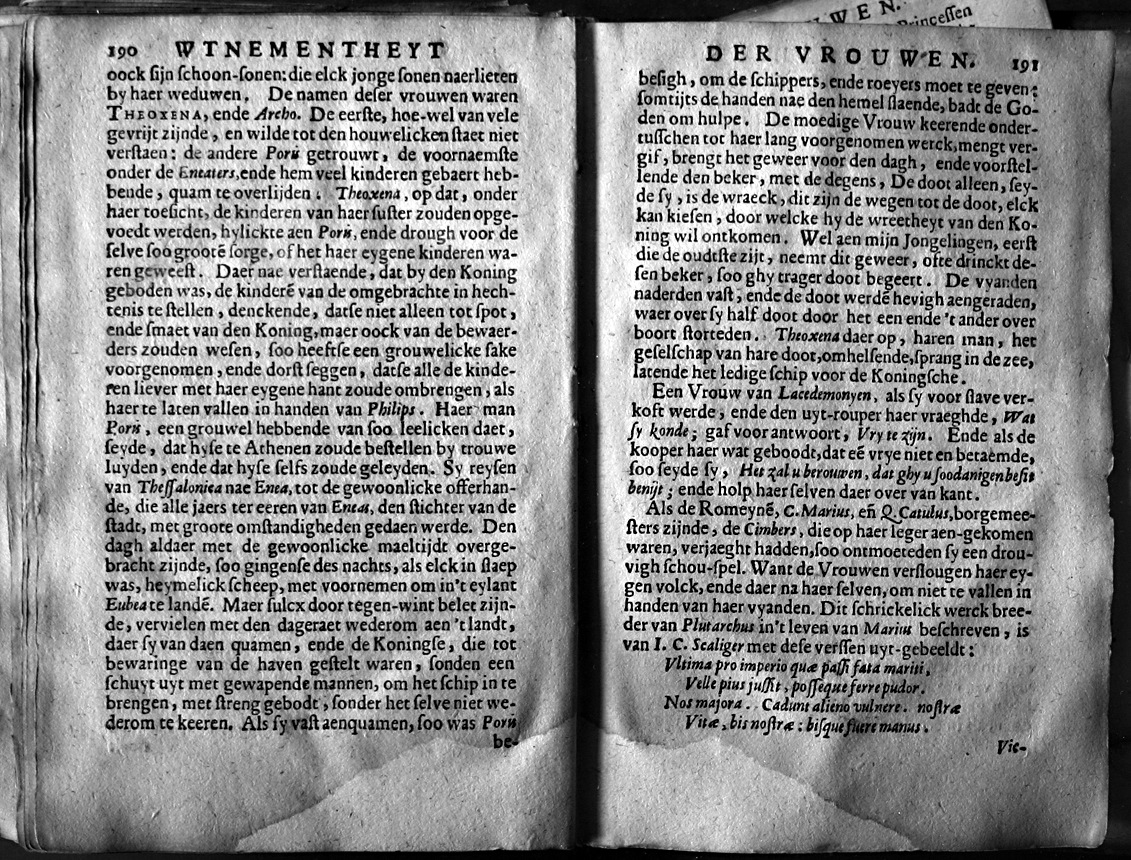 190 WTNEMENTHEYT
oock ſijn ſchoon-ſonen: die elck jonge ſonen naerlieten
by haer weduwen. De namen deſer vrouwen waren
THEOXENA, ende Archo. De eerſte, hoe-wel van vele
gevrijt zijnde, en wilde tot den houwelicken ſtaet niet
verſtaen: de andere Poris getrouwt, de voornaemſte
onder de Eneaters, ende hem veel kinderen gebaert heb-
bende, quam te overlijden. Theoxena, op dat, onder
haer toeſicht, de kinderen van haer ſuſter zouden opge-
voedt werden, hylickte aen Poris, ende drough voor de
ſelve ſoo grootē ſorge, of het haer eygene kinderen wa-
ren geweeſt. Daer nae verſtaende, dat by den Koning
geboden was, de kinderē van de omgebrachte in hech-
tenis te ſtellen, denckende, datſe niet alleen tot ſpot,
ende ſmaet van den Koning, maer oock van de bewaer-
ders zouden weſen, ſoo heeftſe een grouwelicke ſake
voorgenomen, ende dorſt ſeggen, datſe alle de kinde-
ren liever met haer eygene hant zoude ombrengen, als
haer te laten vallen in handen van Philips. Haer man
Poris, een grouwel hebbende van ſoo leelicken daet,
ſeyde, dat hyſe te Athenen zoude beſtellen by trouwe
luyden, ende dat hyſe ſelfs zoude geleyden. Sy reyſen
van Theſſalonica nae Enea, tot de gewoonlicke offerhan-
de, die alle jaers ter eeren van Eneas, den ſtichter van de
ſtadt, met groote omſtandigheden gedaen werde. Den
dagh aldaer met de gewoonlicke maeltijdt overge-
bracht zijnde, ſoo gingenſe des nachts, als elck in ſlaep
was, heymelick ſcheep, met voornemen om in't eylant
Eubea te landē. Maer ſulcx door tegen-wint belet zijn-
de, vervielen met den dageraet wederom aen 't landt,
daer ſy van daen quamen, ende de Koningſe, die tot
bewaringe van de haven geſtelt waren, ſonden een
ſchuyt uyt met gewapende mannen, om het ſchip in te
brengen, met ſtreng gebodt, ſonder het ſelve niet we-
derom te keeren. Als ſy vaſt aenquamen, ſoo was Poris
be-
UWEN.
Princeſſen
DER VROUWEN. 191
beſigh, om de ſchippers, ende roeyers moet te geven:
ſomtijts de handen nae den hemel ſlaende, badt de Go-
den om hulpe. De moedige Vrouw keerende onder-
tuſſchen tot haer lang voorgenomen werck, mengt ver-
gif, brengt het geweer voor den dagh, ende voorſtel-
lende den beker, met de degens, De doot alleen, ſey-
de ſy, is de wraeck, dit zijn de wegen tot de doot, elck
kan kieſen, door welcke hy de wreetheyt van den Ko-
ning wil ontkomen. Wel aen mijn Jongelingen, eerſt
die de oudtſte zijt, neemt dit geweer, ofte drinckt de-
ſen beker, ſoo ghy trager doot begeert. De vyanden
naderden vaſt, ende de doot werdē hevigh aengeraden,
waer over ſy half doot door het een ende 't ander over
boort ſtorteden. Theoxena daer op, haren man, het
geſelſchap van hare doot, omhelſende, ſprang in de zee,
latende het ledige ſchip voor de Koningſche.
Een Vrouw van Lacedemonyen, als ſy voor ſlave ver-
koft werde, ende den uyt-rouper haer vraeghde, Wat
ſy konde; gaf voor antwoort, Vry te zijn. Ende als de
kooper haer wat geboodt, dat eē vrye niet en betaemde,
ſoo ſeyde ſy, Het zal u berouwen, dat ghy u ſoodanigen beſit
benijt; ende holp haer ſelven daer over van kant.
Als de Romeynē, C. Marius, en̄ Q. Catulus, borgemee-
ſters zijnde, de Cimbers, die op haer leger aen-gekomen
waren, verjaeght hadden, ſoo ontmoeteden ſy een drou-
vigh ſchou-ſpel. Want de Vrouwen verſlougen haer ey-
gen volck, ende daer na haer ſelven, om niet te vallen in
handen van haer vyanden. Dit ſchrickelick werck bree-
der van Plutarchus in't leven van Marius beſchreven, is
van I. C. Scaliger met deſe verſſen uyt-gebeeldt:
Vltima pro imperio quæ paſſi fata mariti,
Velle pius juſſit, poſſeque ferre pudor.
Nos majora. Cadunt alieno vulnere. noſtræ
Vitæ, bis noſtræ: biſque fuere manus.
Vic-